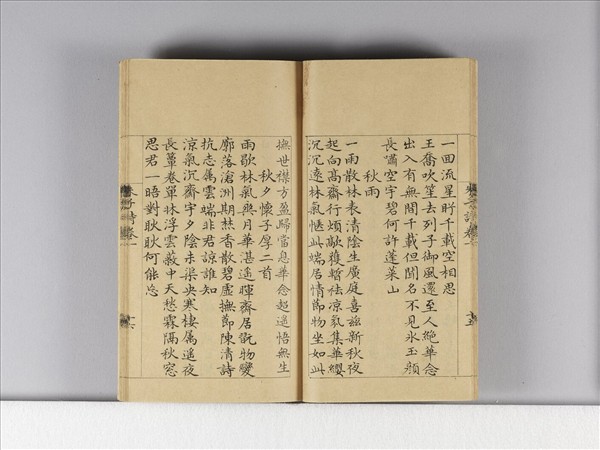 一回流星盻千載空相思
王喬吹笙去列子御風還至人絕華念
出入有無間千載但聞名不見冰玉顏
長嘯空宇碧何許蓬萊山
秋雨
一雨散林表清陰生廣庭喜茲新秋夜
起向高齋行煩歊獲暫祛凉氣集華纓
沉沉遠林氣愜此端居情節物坐如此
撫世襟方盈歸當息華念超遥悟無生
秋夕懷子厚二首
雨歇林氣爽月華湛遥暉齋居翫物變
廓落滄洲期爇香散碧虚撫節陳清詩
抗志属雲端非君諒誰知
凉氣沉齋宇夕陰未渠央寒棲属遥夜
長簟卷單牀浮雲蔽中天愁霖隔秋窓
思君一晤對耿耿何能忘